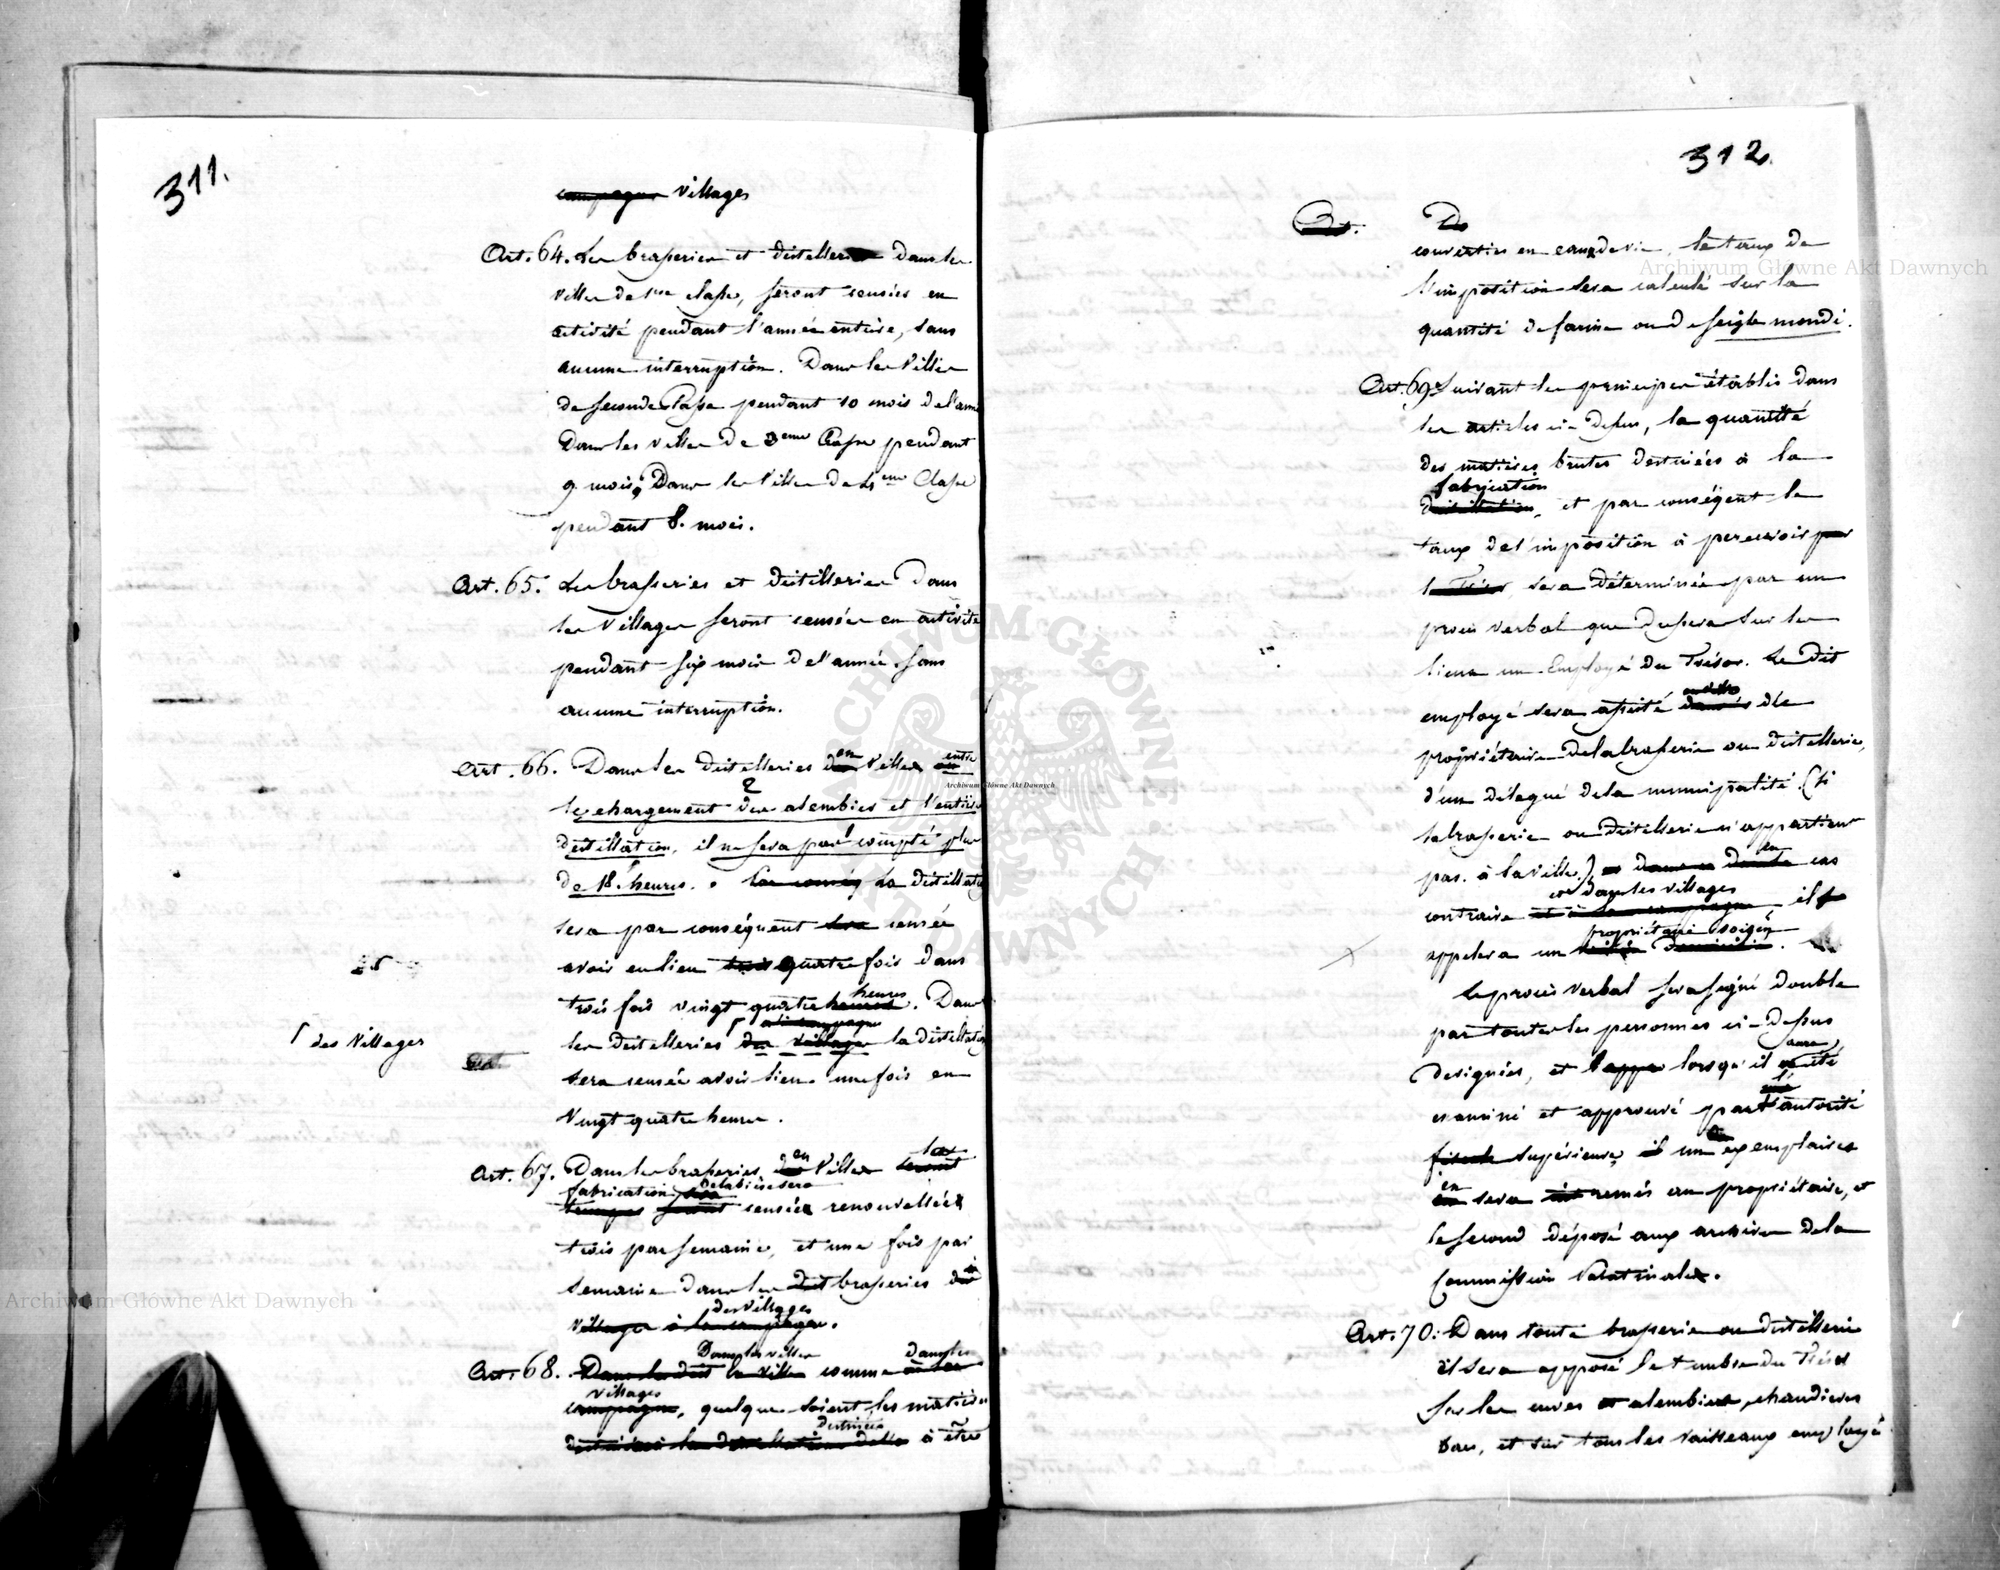 311.
campagne villages
Art. 64. Les brasseries et distilleries dans les
villes de 1re classe, seront censées en
activité pendant l'année entière, sans
aucune interruption. Dans les Villes
de seconde Classe pendant 10 mois de l'anné
Dans les villes de 3eme Classe pendant
9. mois, Dans les Villes de 4eme Classe
pendant 8. mois.
Art. 65. Les brasseries et distilleries Dans
les Villages seront censées en activité
pendant six mois de l'année sans
aucune interruption.
Art. 66. Dans les distilleries en Villes entre
le chargement des alembics et l'entière
distillation, il ne sera pas compté plus
de 18. heures. La distillation
sera par conséquent censée
avoir eu lieu trois quatre fois dans
trois fois vingt quatre heures. Dans
à la campagne
les distilleries des villages la distillation
des Villages
Art.
sera censée avoir lieu une fois en
Vingt quatre heures.
Art. 67. Dans les brasseries en Villes la
fabrication de la bière sera
trempes seront censées renouvellées
trois par semaine, et une fois par
semaine dans les dist brasseries des
des Villages
villages à la campagne.
Dans les villes dans les
Art. 68. Dans les dist les villes comme à la
villages
campagne, quelque soient les matières
destinées
à être
312.
Art. Des
converties en eau de vie, le taux de
l'imposition sera calculé sur la
quantité de farine ou de seigle mondé.
Art. 69. Suivant les principes établis dans
les articles ci-dessus, la quantité
des matières brutes destinées à la
fabrication
distillation, et par conséqent le
taux de l'imposition à percevoir par
le Trésor, sera déterminée par un
procès verbal que dressera sur les
lieux un Employé du Trésor. Le dit
employé sera assisté de
propriétaire de la brasserie ou distillerie,
d'un délégué de la municipalité (si
la brasserie ou distillerie n'appartient
pas à la ville.) en cas
ou dans les villages
contraire et à la campagne il
propriétaire voisin
appelera un
Le procès verbal sera signé double
par toutes les personnes ci-dessus
designées, et lorsqu'il aura été
examiné et approuvé par l'autorité
fiscale supérieure, un exemplaire
en sera remis au propriétaire, et
le second déposé aux archives de la
Commission Palatinale.
Art. 70. Dans toute brasserie ou distillerie
il sera apposé le timbre du Trésor
sur les cuves et alembics, chaudières
bacs, et sur tous les vaisseaux employés
Archiwum Główne Akt Dawnych
Archiwum Główne Akt Dawnych
Archiwum Główne Akt Dawnych
ARCHIWUM GŁÓWNE AKT DAWNYCH